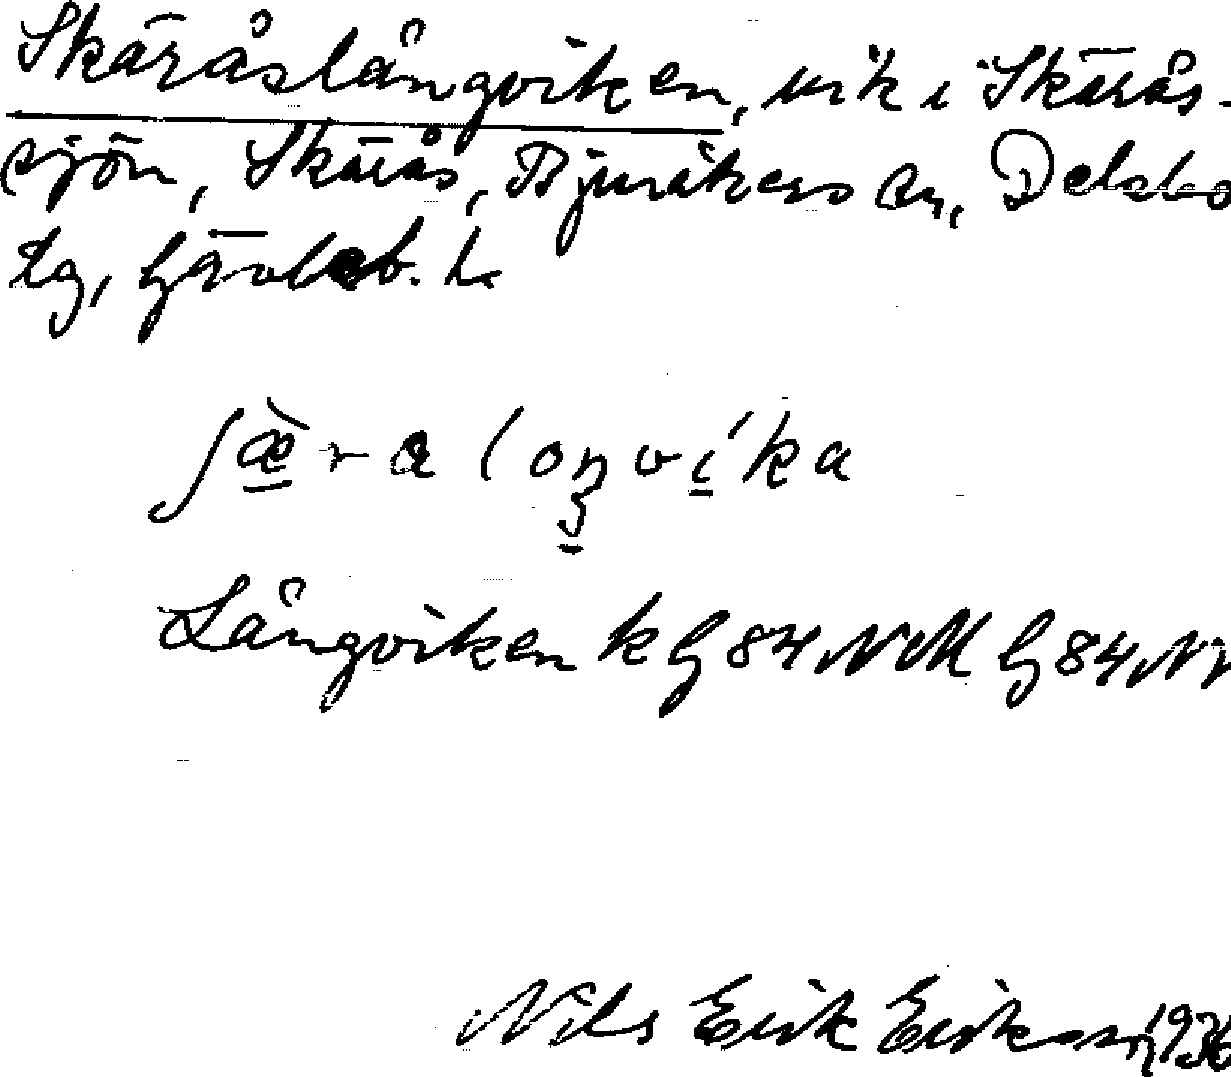 Skäråslångviken, vik i Skärås-
sjön, Skärås, Bjuråkers sn, Delsbo
tg, Gävleb. l.
ʃæ̀ra loŋvíka
Långviken k G 84 NM G 84 NV
Nils Erik Eriksson 1936